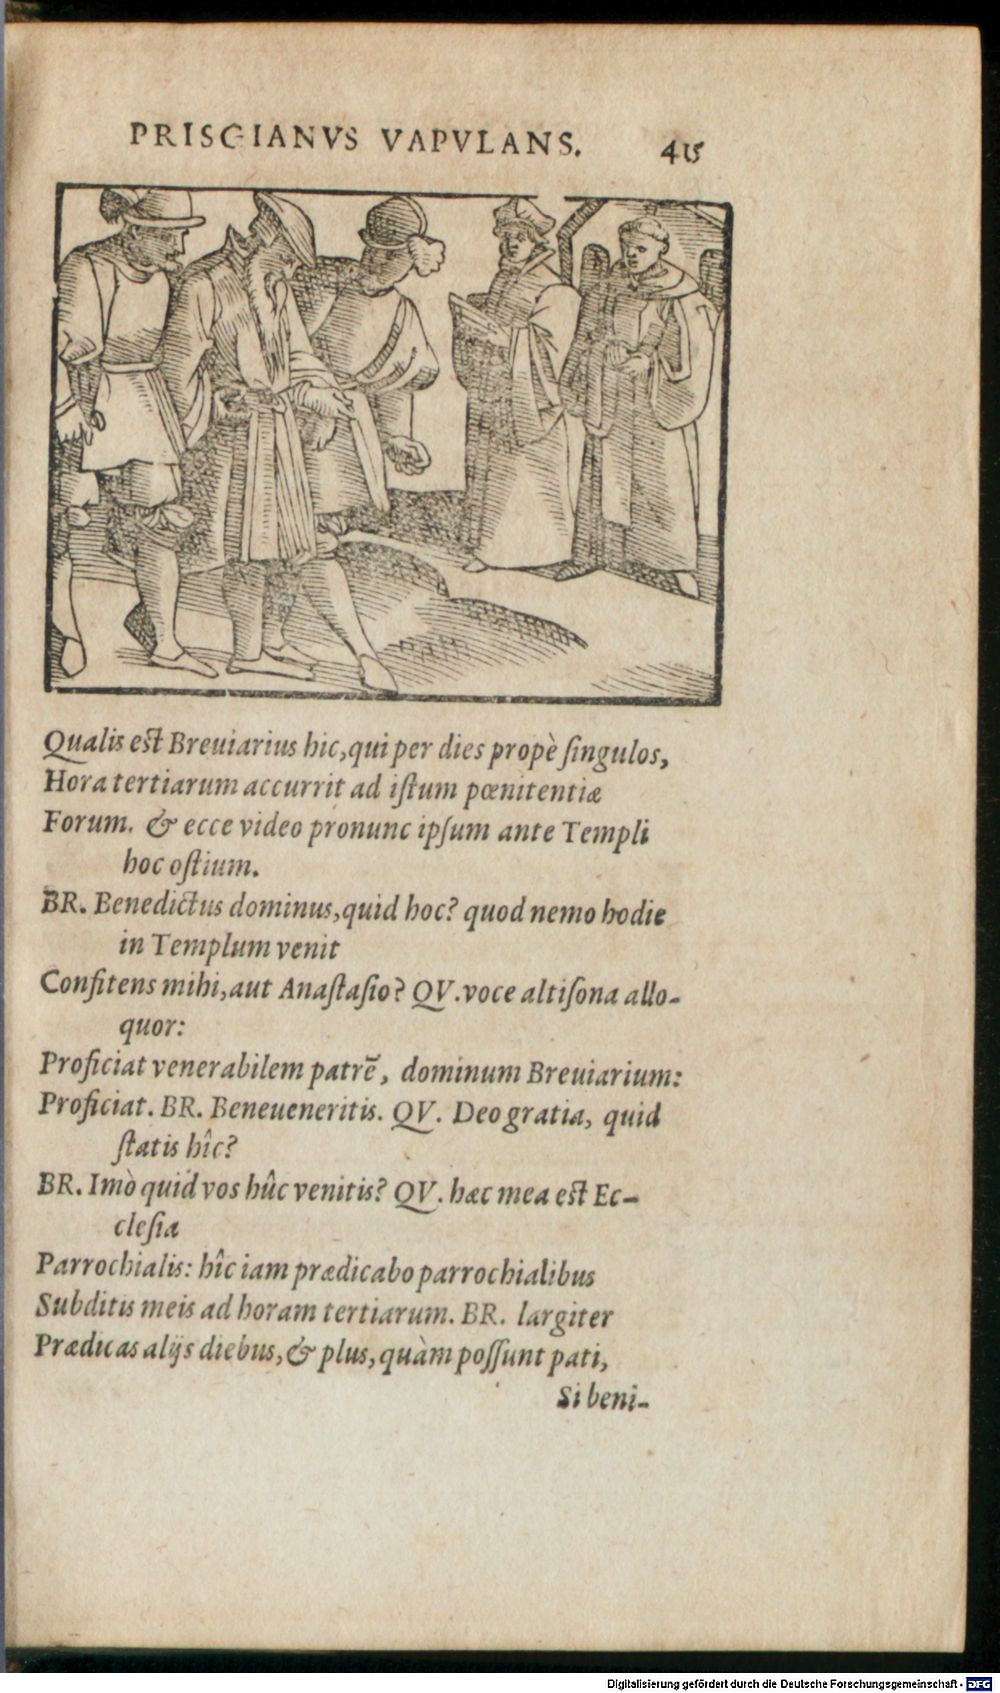 PRISCIANVS VAPVLANS. 415
Qualis est Breuiarius hic, qui per dies propè ſingulos,
Hora tertiarum accurrit ad iſtum pœnitentiæ
Forum. & ecce video pronunc ipſum ante Templi
hoc oſtium.
BR. Benedictus dominus, quid hoc? quod nemo hodie
in Templum venit
Confitens mihi, aut Anaſtaſio? QV. voce altiſona allo-
quor:
Proficiat venerabilem patrē, dominum Breuiarium:
Proficiat. BR. Beneueneritis. QV. Deo gratia, quid
ſtatis hîc?
BR. Imò quid vos hûc venitis? QV. hæc mea est Ec-
cleſia
Parrochialis: hîc iam prædicabo parrochialibus
Subditis meis ad horam tertiarum. BR. largiter
Prædicas alijs diebus, & plus, quàm poſſunt pati,
Si beni-
Digitalisierung gefördert durch die Deutsche Forschungsgemeinschaft - DFG